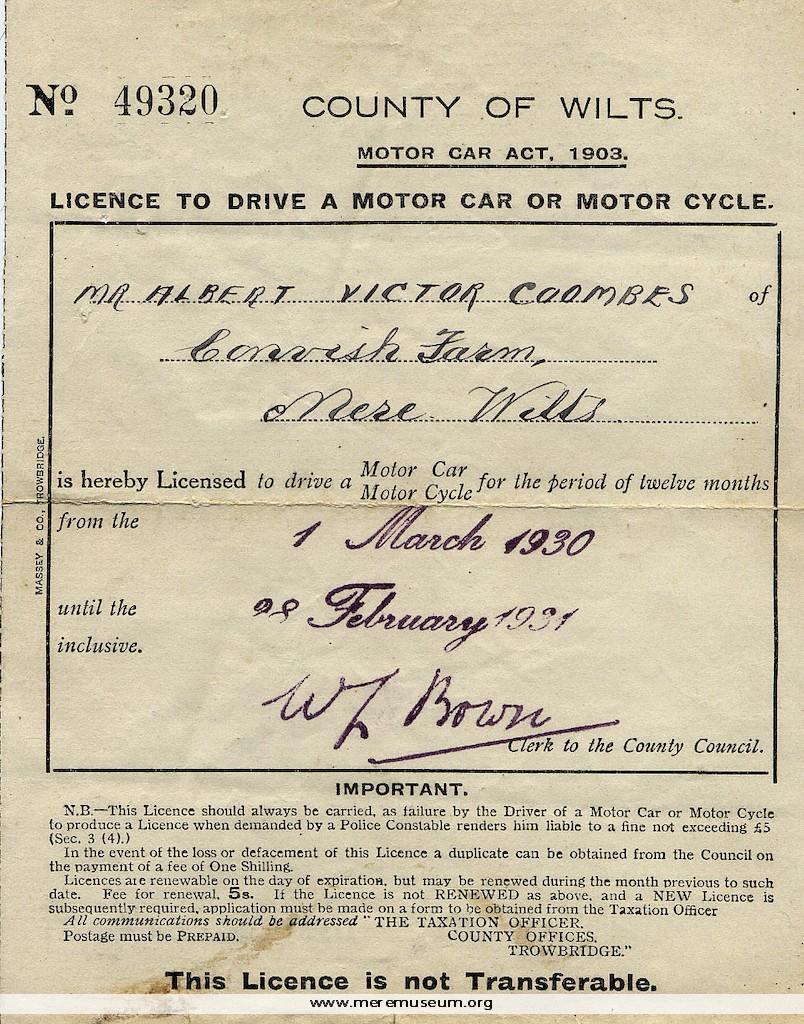 Nº 49320 COUNTY OF WILTS.
MOTOR CAR ACT, 1903.
LICENCE TO DRIVE A MOTOR CAR OR MOTOR CYCLE.
MR ALBERT VICTOR COOMBES of
Convish Farm,
Mere Wilts
is hereby Licensed to drive a Motor Car
Motor Cycle for the period of twelve months
from the 1 March 1930
until the 28 February 1931
inclusive.
W L Bown
Clerk to the County Council.
MASSEY & CO., TROWBRIDGE.
IMPORTANT.
N.B.—This Licence should always be carried, as failure by the Driver of a Motor Car or Motor Cycle
to produce a Licence when demanded by a Police Constable renders him liable to a fine not exceeding £5
(Sec. 3 (4).)
In the event of the loss or defacement of this Licence a duplicate can be obtained from the Council on
the payment of a fee of One Shilling.
Licences are renewable on the day of expiration, but may be renewed during the month previous to such
date. Fee for renewal, 5s. If the Licence is not RENEWED as above, and a NEW Licence is
subsequently required, application must be made on a form to be obtained from the Taxation Officer
All communications should be addressed "THE TAXATION OFFICER,
Postage must be PREPAID. COUNTY OFFICES,
TROWBRIDGE."
This Licence is not Transferable.
www.meremuseum.org